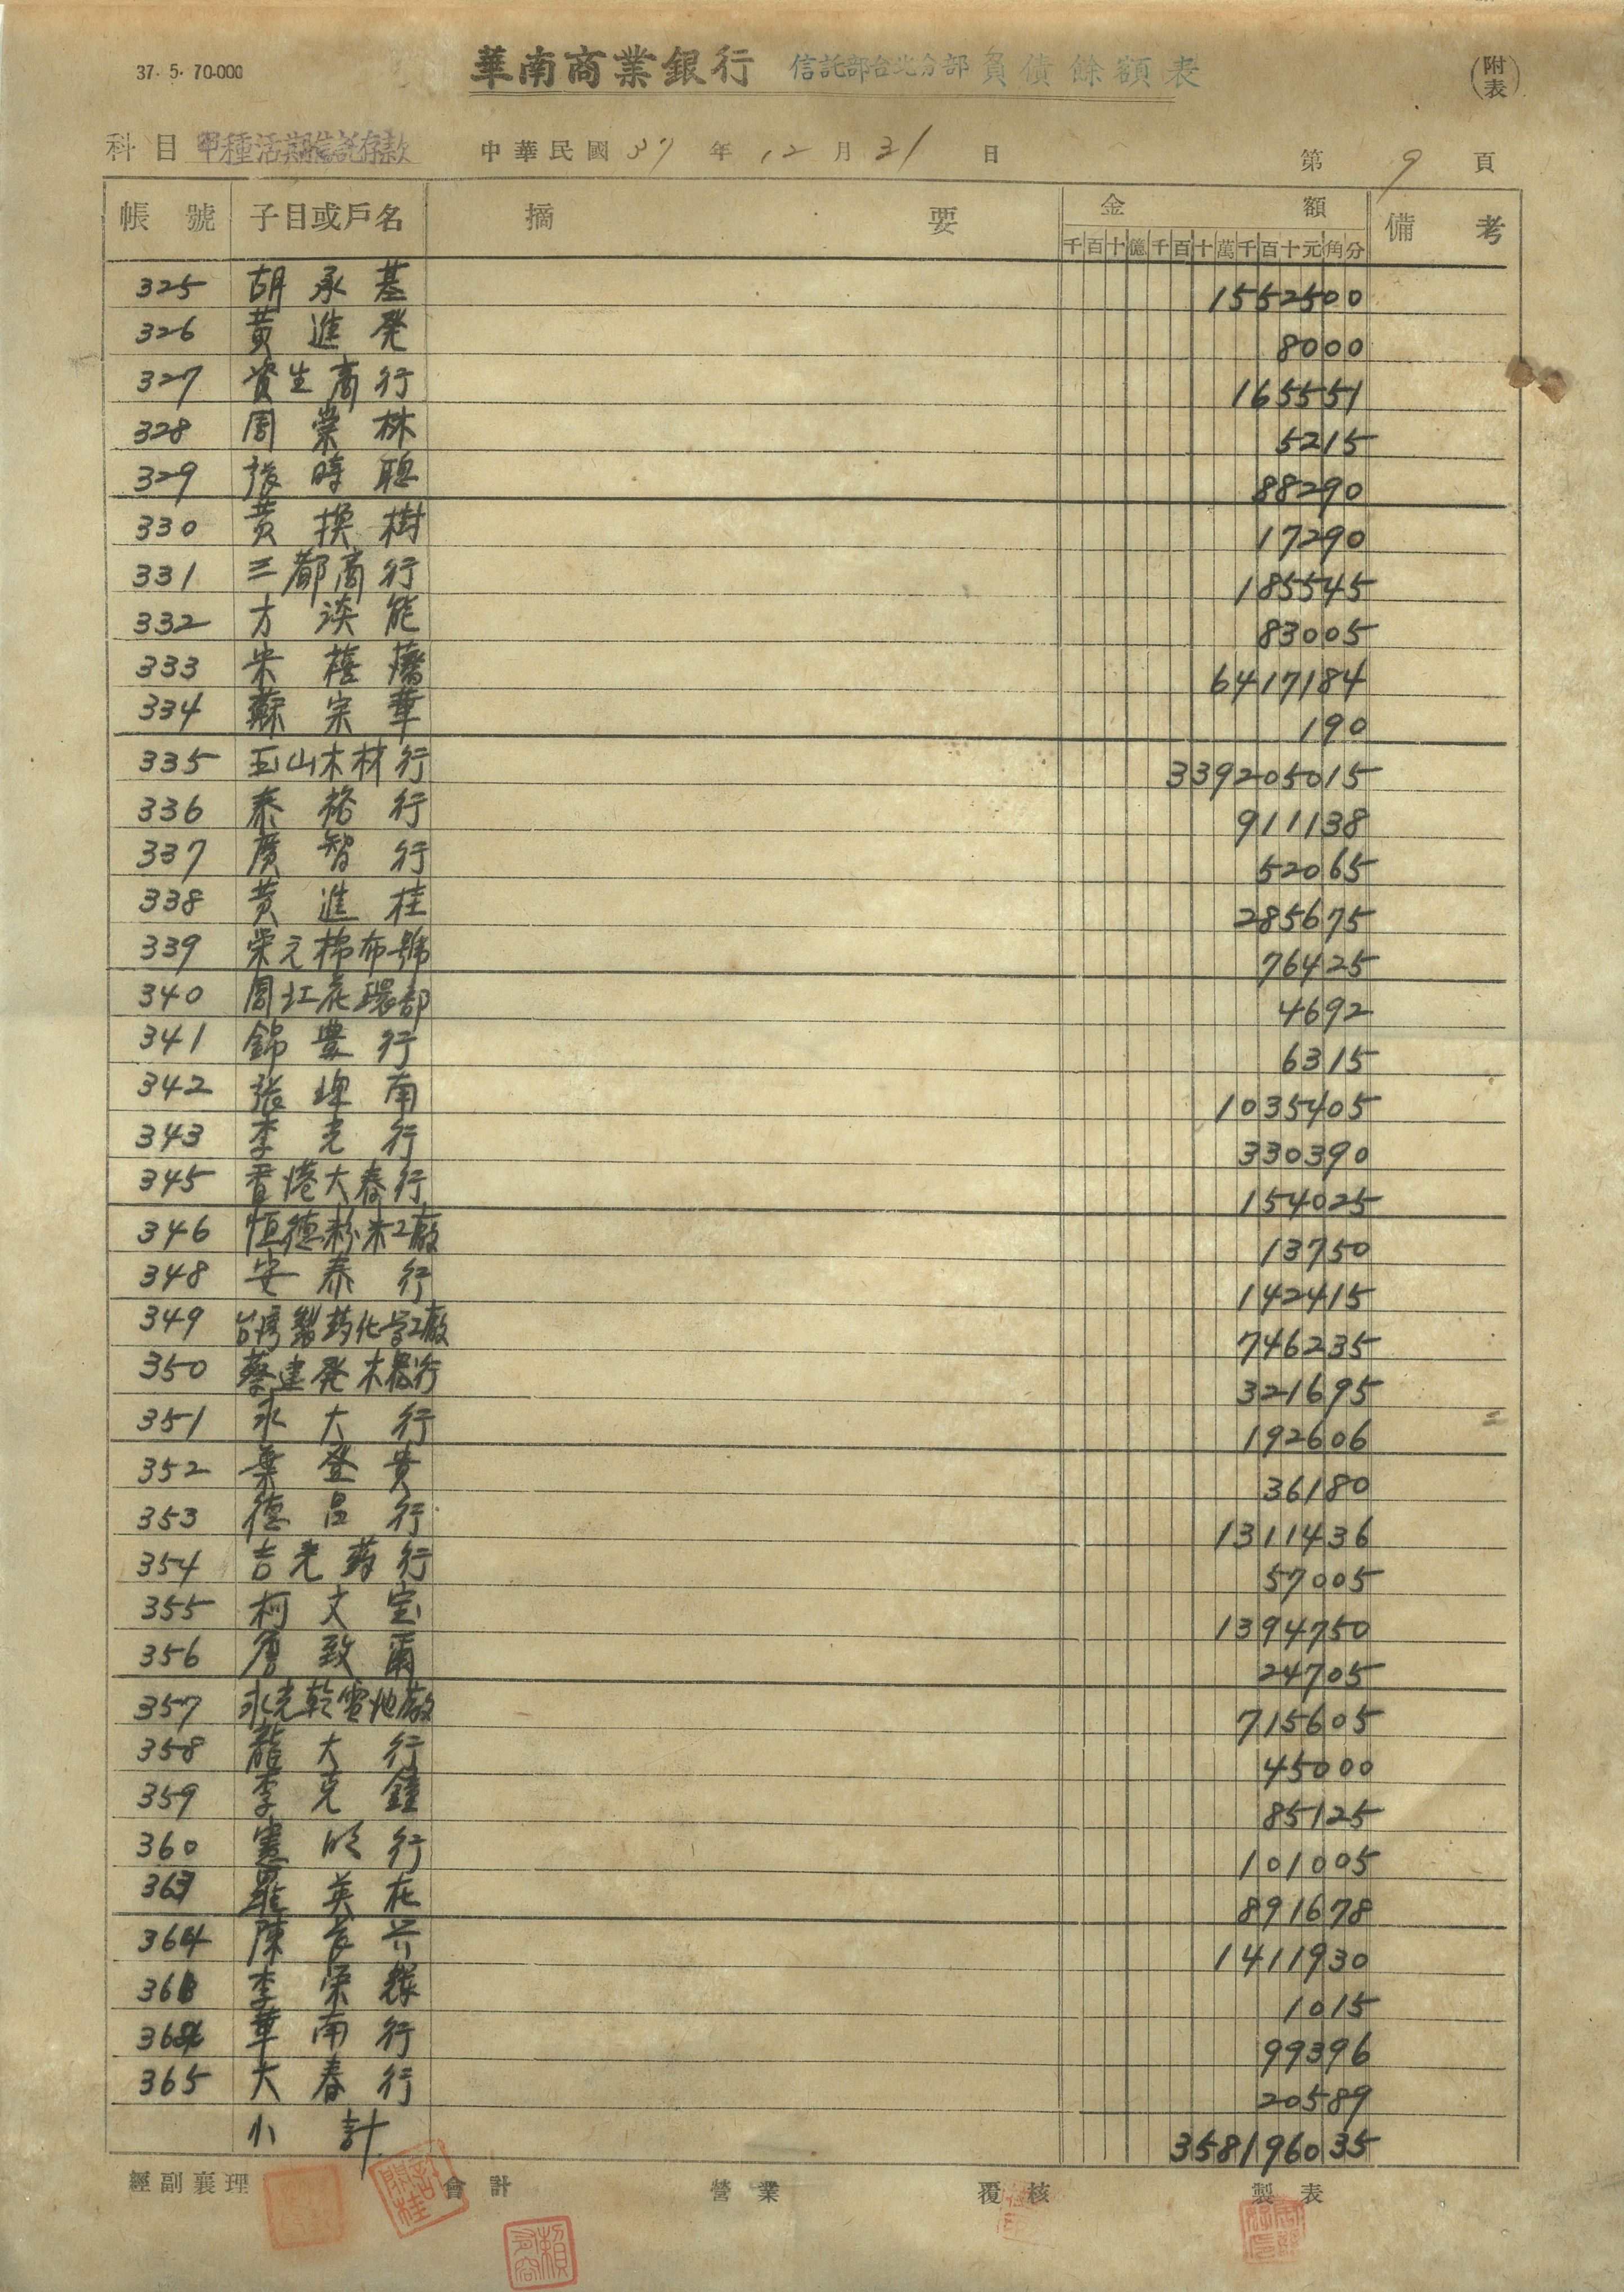 37. 5. 70-000
華南商業銀行 信託部台北分部 負債餘額表
(附表)
科目 甲種活期信託存款 中華民國 37 年 12 月 31 日 第 9 頁
帳號 子目或戶名 摘要 金額 備考
千百十億千百十萬千百十元角分
325 胡承基 1552500
326 黃進発 8000
327 資生商行 165551
328 周崇林 5215
329 張時聰 88290
330 黃換樹 17290
331 三都商行 185545
332 方談能 83005
333 6417184
334 蘇宗華 190
335 玉山木材行 339205015
336 泰裕行 911138
337 廣智行 52065
338 黃進桂 285675
339 栄元棉布號 76425
340 4692
341 錦豊行 6315
342 張坤南 1035405
343 李光行 330390
345 香港大春行 154025
346 恒德粉米工廠 13750
348 安泰行 142415
349 台湾製葯化学工廠 746235
350 蔡建発木器行 321695
351 永大行 192606
352 葉登貴 36180
353 德昌行 1311436
354 吉光葯行 57005
355 柯文宝 1394750
356 詹致爾 24705
357 永光乾電池廠 715605
358 龍大行 45000
359 李克鐘 85125
360 憲明行 101005
羅英在 891678
364 陳長 1411930
李栄 1015
華南行 99396
365 大春行 20589
小計 358196035
經副襄理 會計 營業 覆核 製表